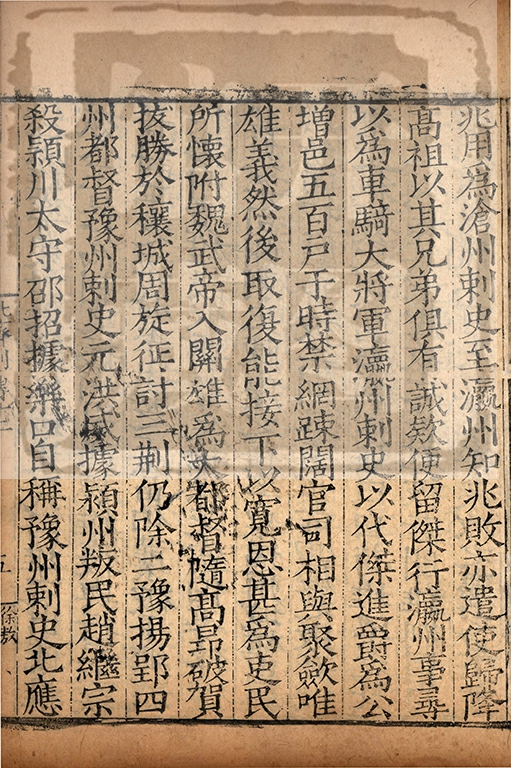 兆用為滄州刺史至瀛州知兆敗亦遣使歸降
髙祖以其兄弟俱有誠欵便留傑行瀛州事尋
以為車騎大將軍瀛州刺史以代傑進爵為公
增邑五百戸于時禁網踈闊官司相與聚歛唯
雄義然後取復能接下以寛恩甚為吏民
所懷附魏武帝入關雄為大都督隨髙昻破賀
拔勝於穰城周旋征討三荆仍除二豫揚郢四
州都督豫州刺史元洪威據潁州叛民趙繼宗
殺潁川太守邵招據樂口自稱豫州刺史北應
五